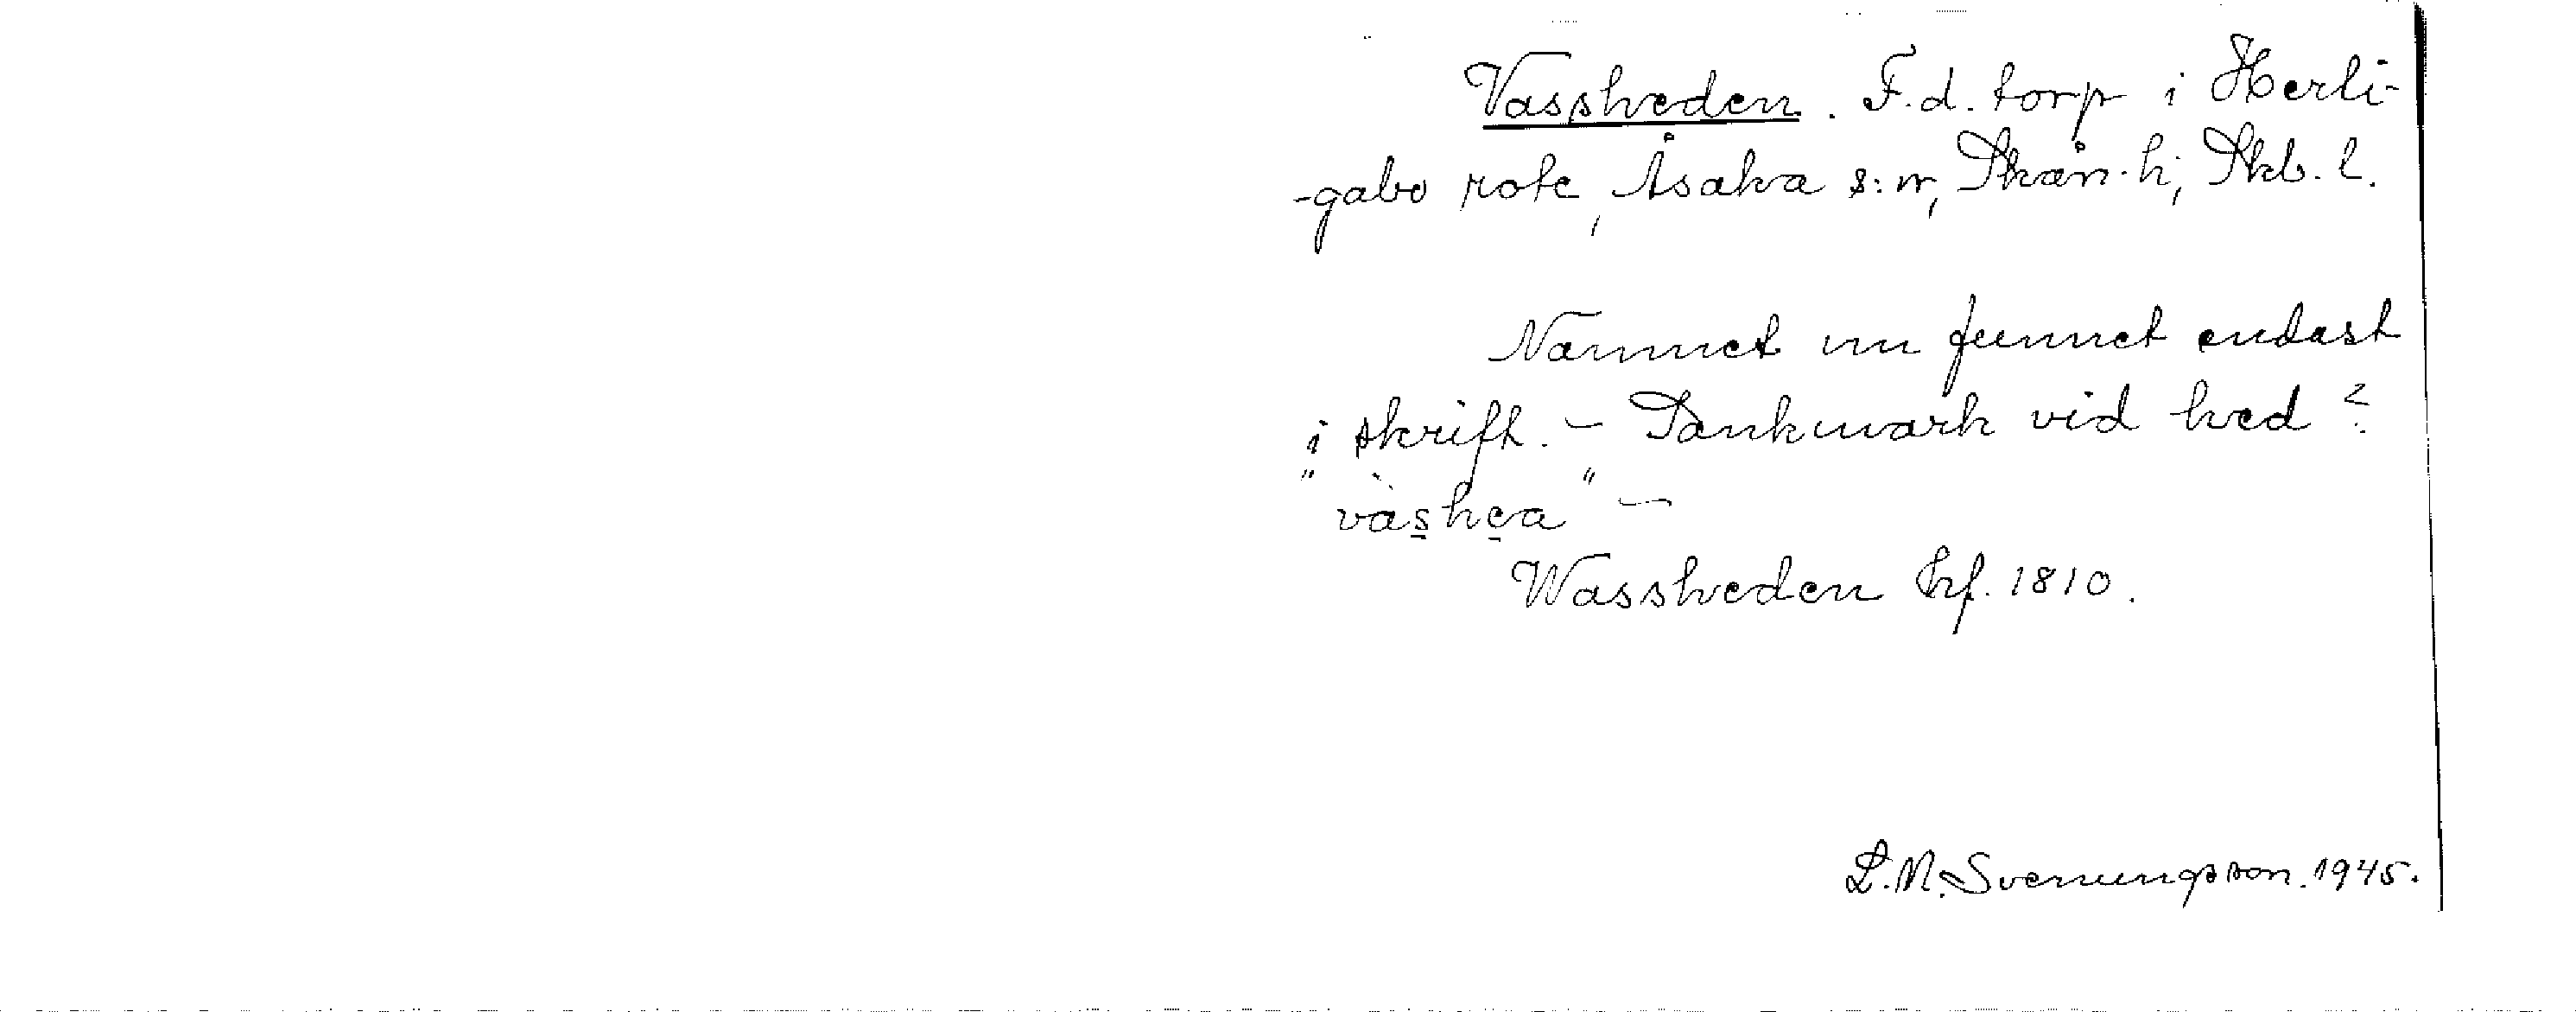 Vassheden. F.d. torp i Herli-
-gabo rote, Åsaka s:n, Skån. h., Skb. l.
Namnet nu funnet endast
i skrift. – Sankmark vid hed?
"vàshea" –
Wassheden hf. 1810.
L.M. Svenungsson. 1945.